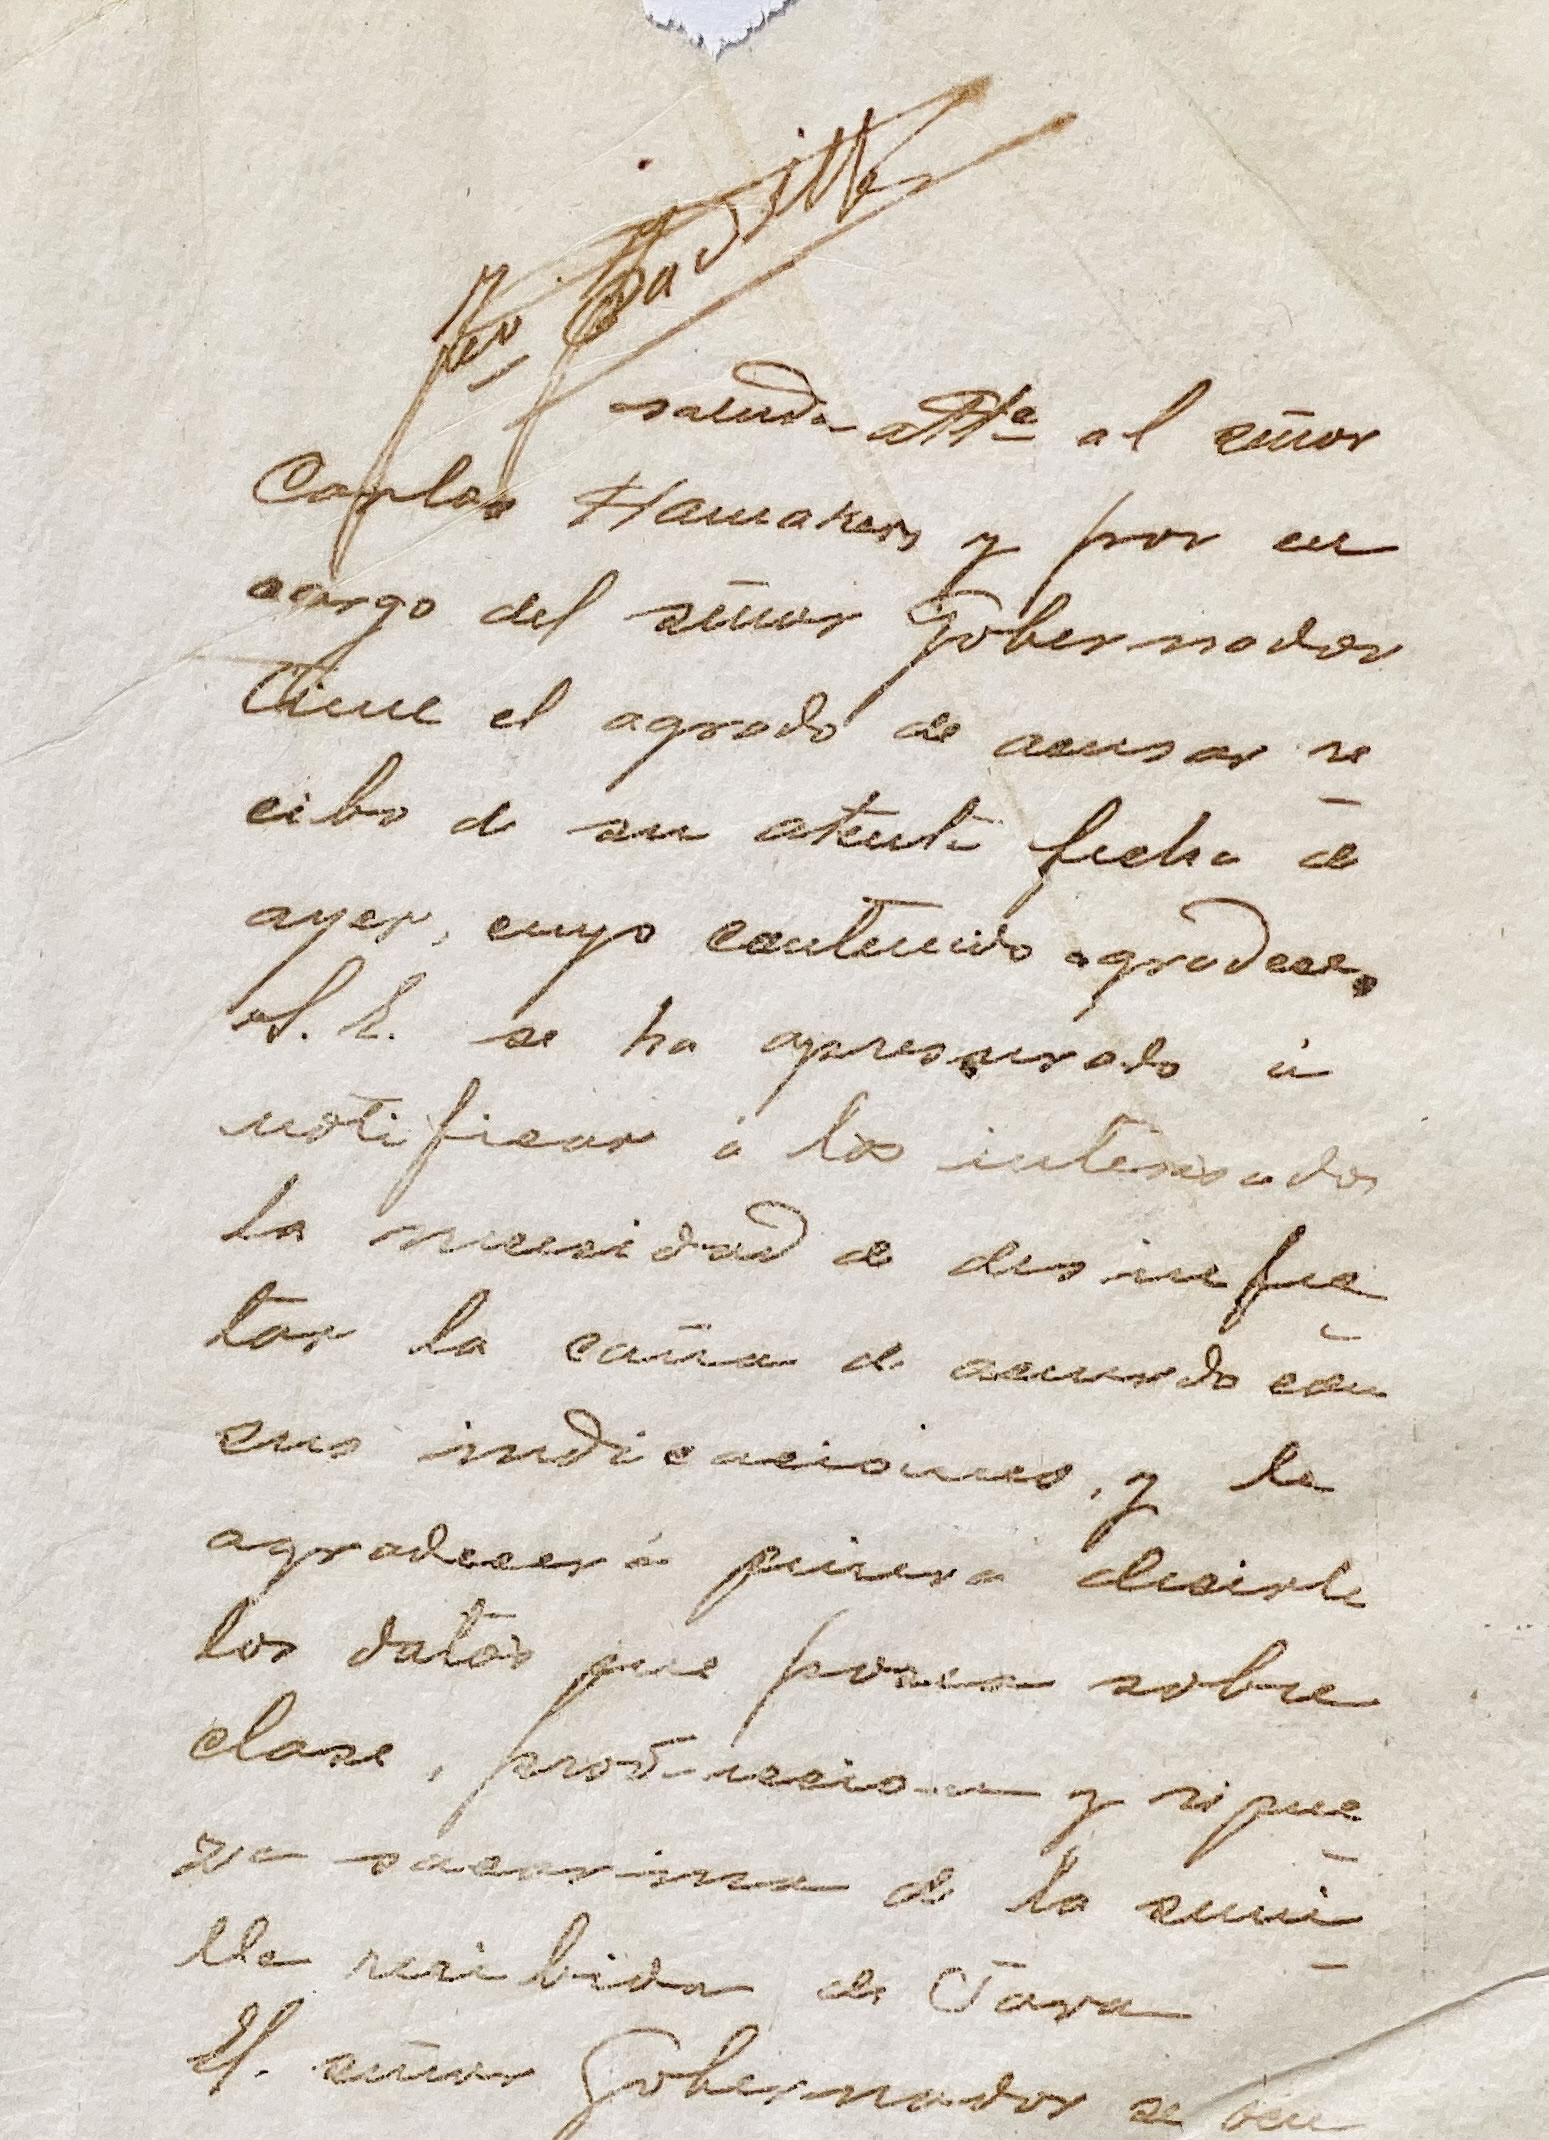 saluda att<sup>e</sup> al señor
Carlos Hamakers y por en
cargo del señor Gobernador
tiene el agrado de acusar re
cibo de su atenta fecha de
ayer, cuyo contenido agradece.
S. E. se ha apresurado á
notificar á los interesados
la necesidad de desinfec
tar la caña de acuerdo con
sus indicaciones, y le
agradecerá quiera decirle
los datos que posea sobre
clase, producción y rique
za sacarina de la semi
lla recibida de Java
El señor Gobernador se en